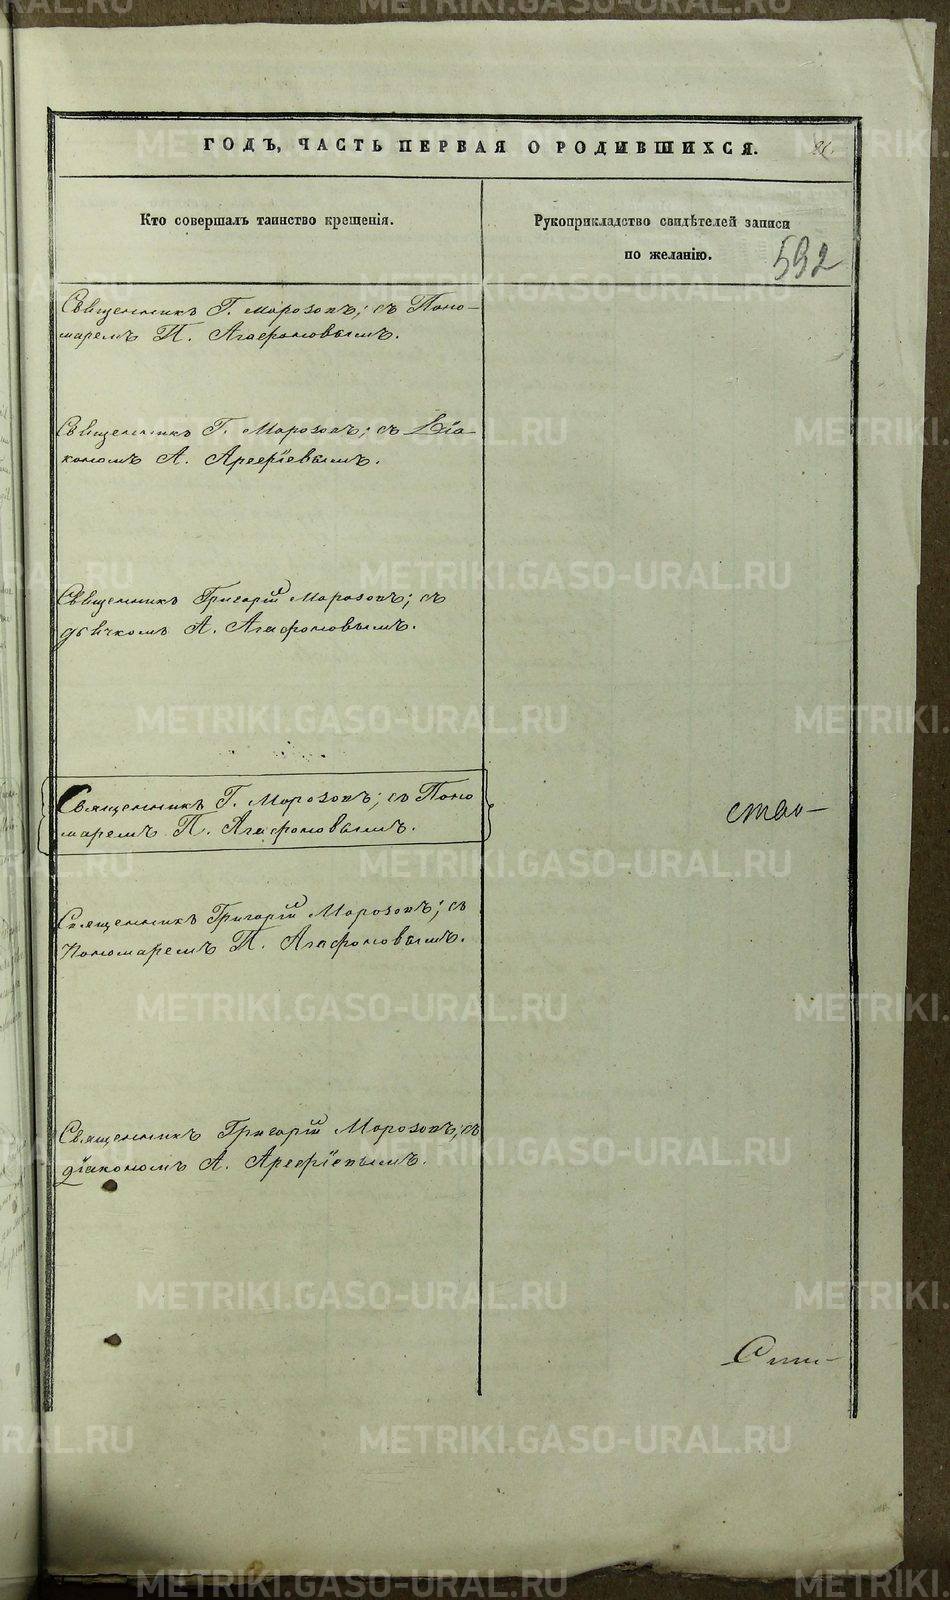 ГОДЪ, ЧАСТЬ ПЕРВАЯ О РОДИВШИХСЯ.
Кто совершалъ таинство крещенія.
Рукоприкладство свидѣтелей записи
по желанію.
592
Священникъ Г. Морозовъ; съ Поно-
маремъ П. Агафоновымъ.
Священникъ Г. Морозовъ; съ Діа-
кономъ А. Арефіевымъ.
Священникъ Григорій Морозовъ; съ
дьячкомъ А. Агафоновымъ.
Священникъ Г. Морозовъ; съ Поно
маремъ П. Агафоновымъ.
Священникъ Григорій Морозовъ; съ
Пономаремъ П. Агафоновымъ.
Священникъ Григорій Морозовъ; съ
діакономъ А. Арефіевымъ.
METRIKI.GASO-URAL.RU